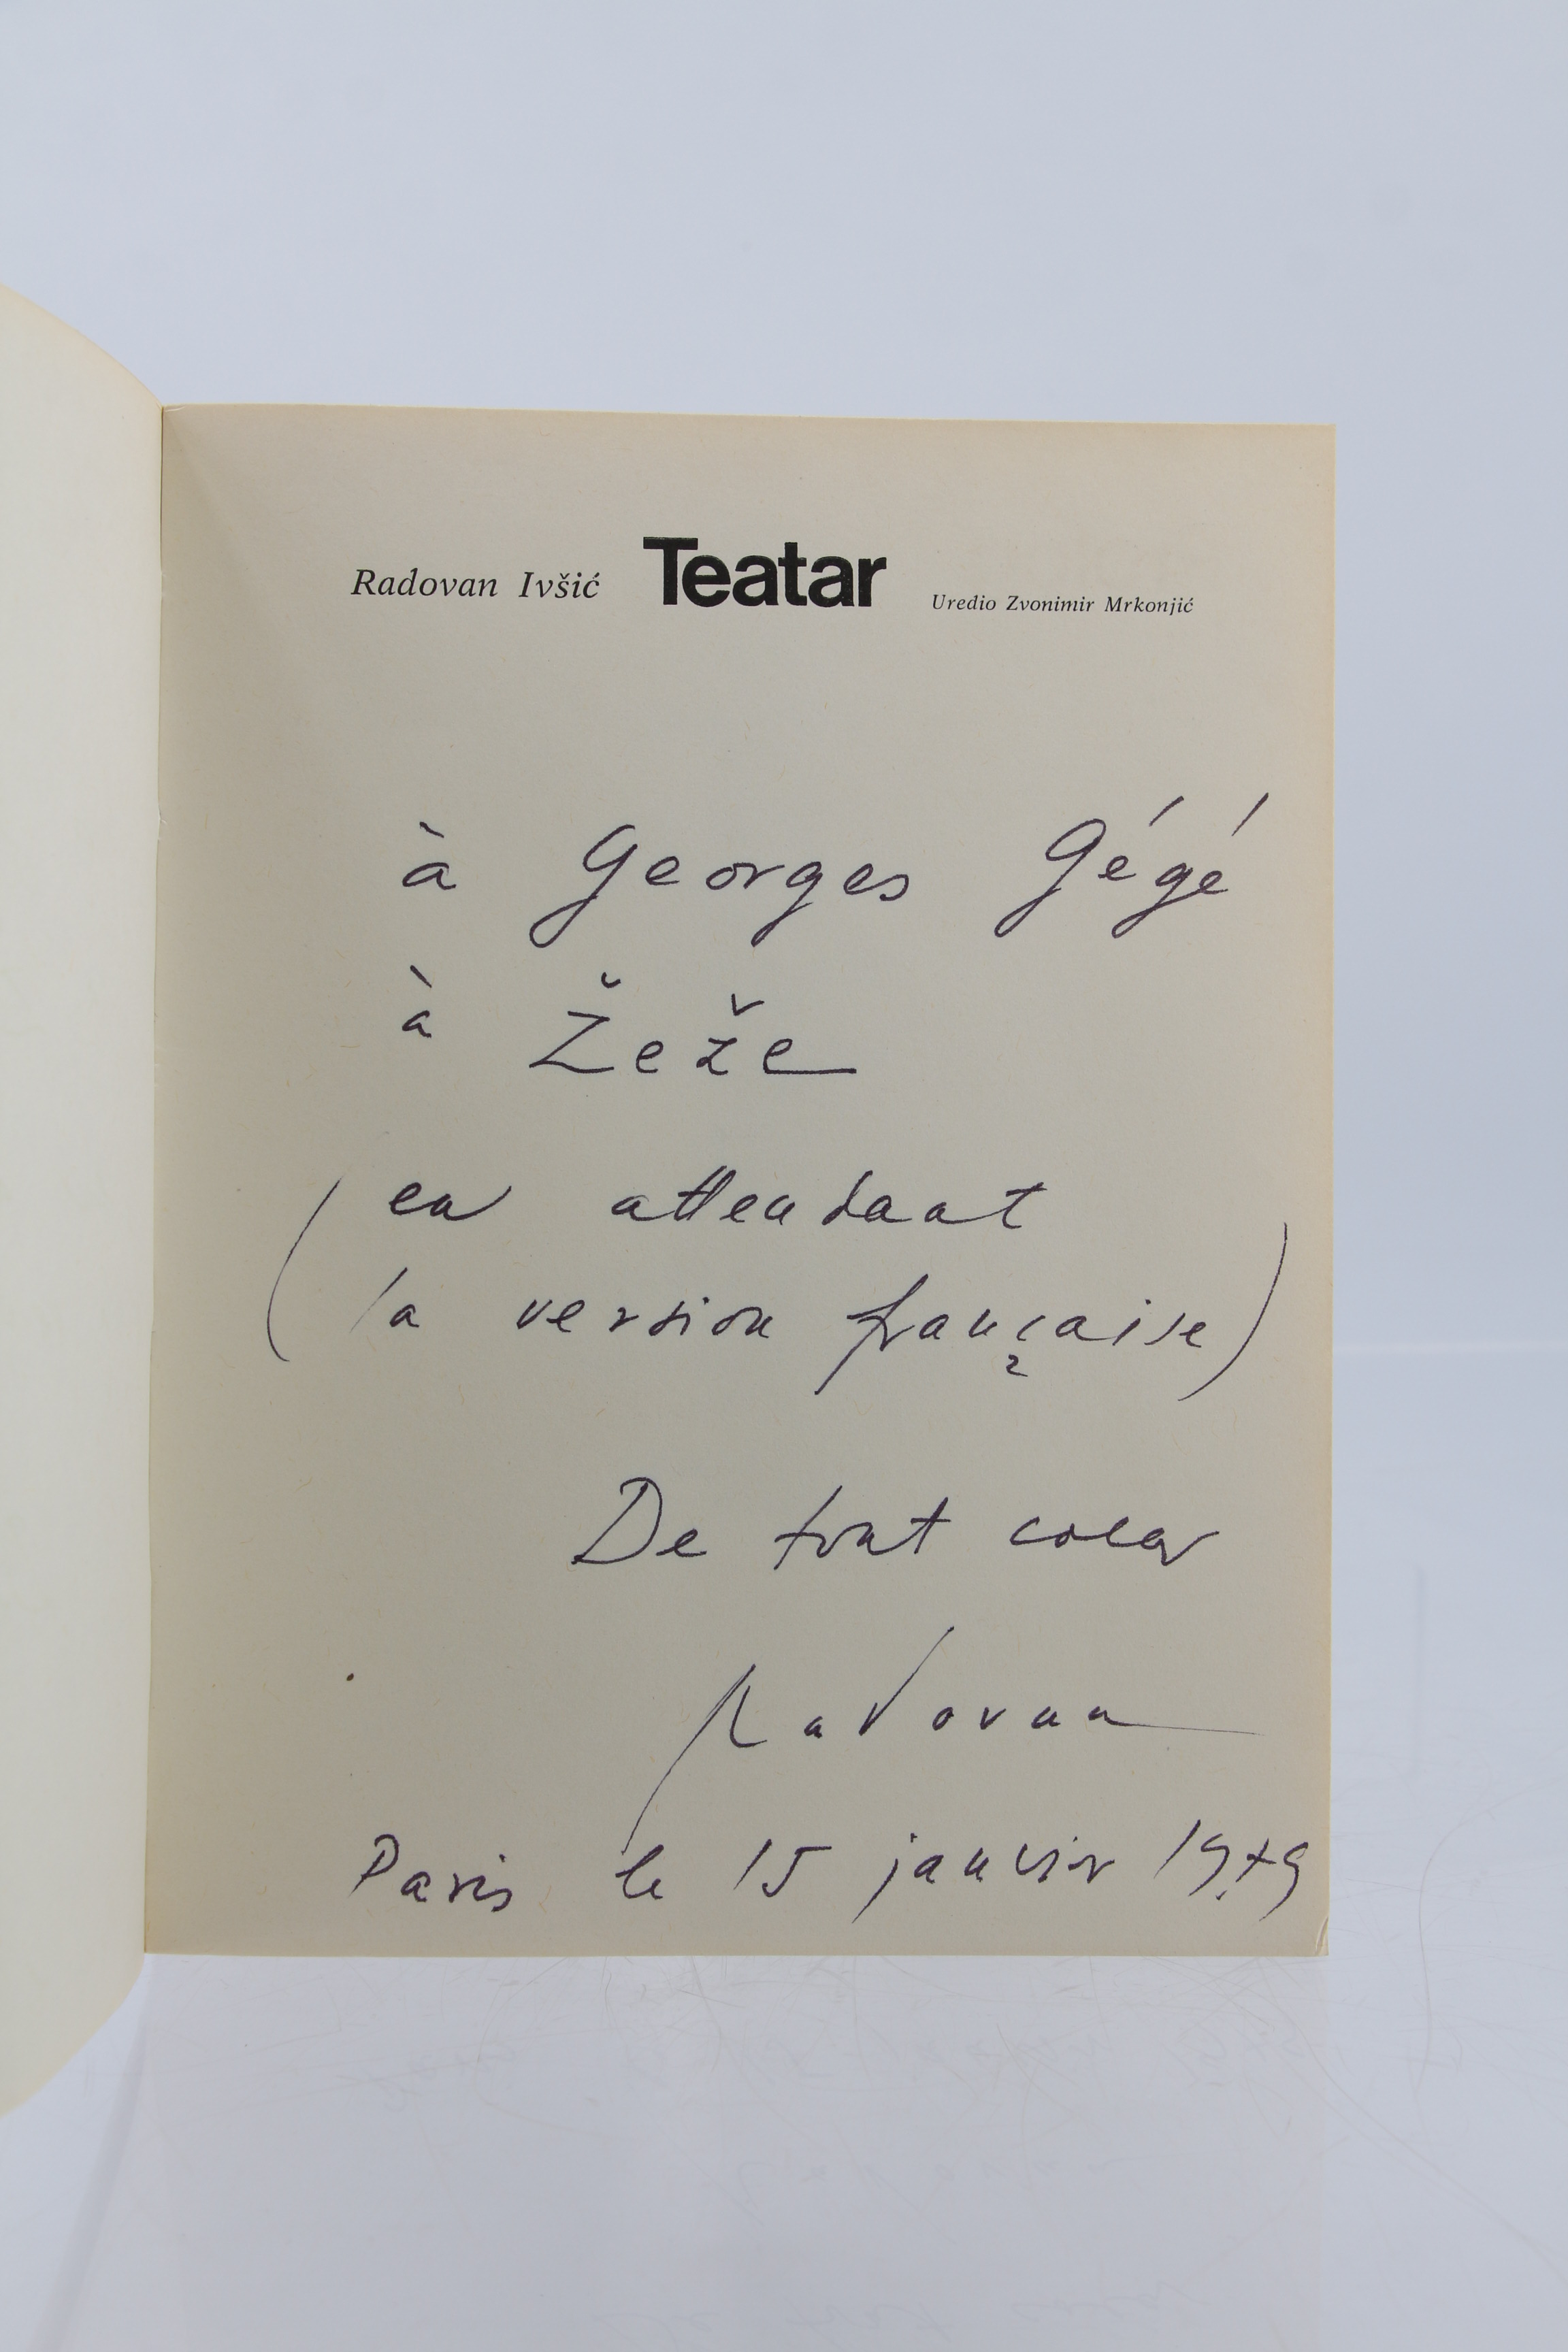 Radovan Ivšić Teatar Uredio Zvonimir Mrkonjić
à Georges Gégé
à Žeže
(en attendant
la version française)
De tout coeur
Radovan
Paris le 15 janvier 1979